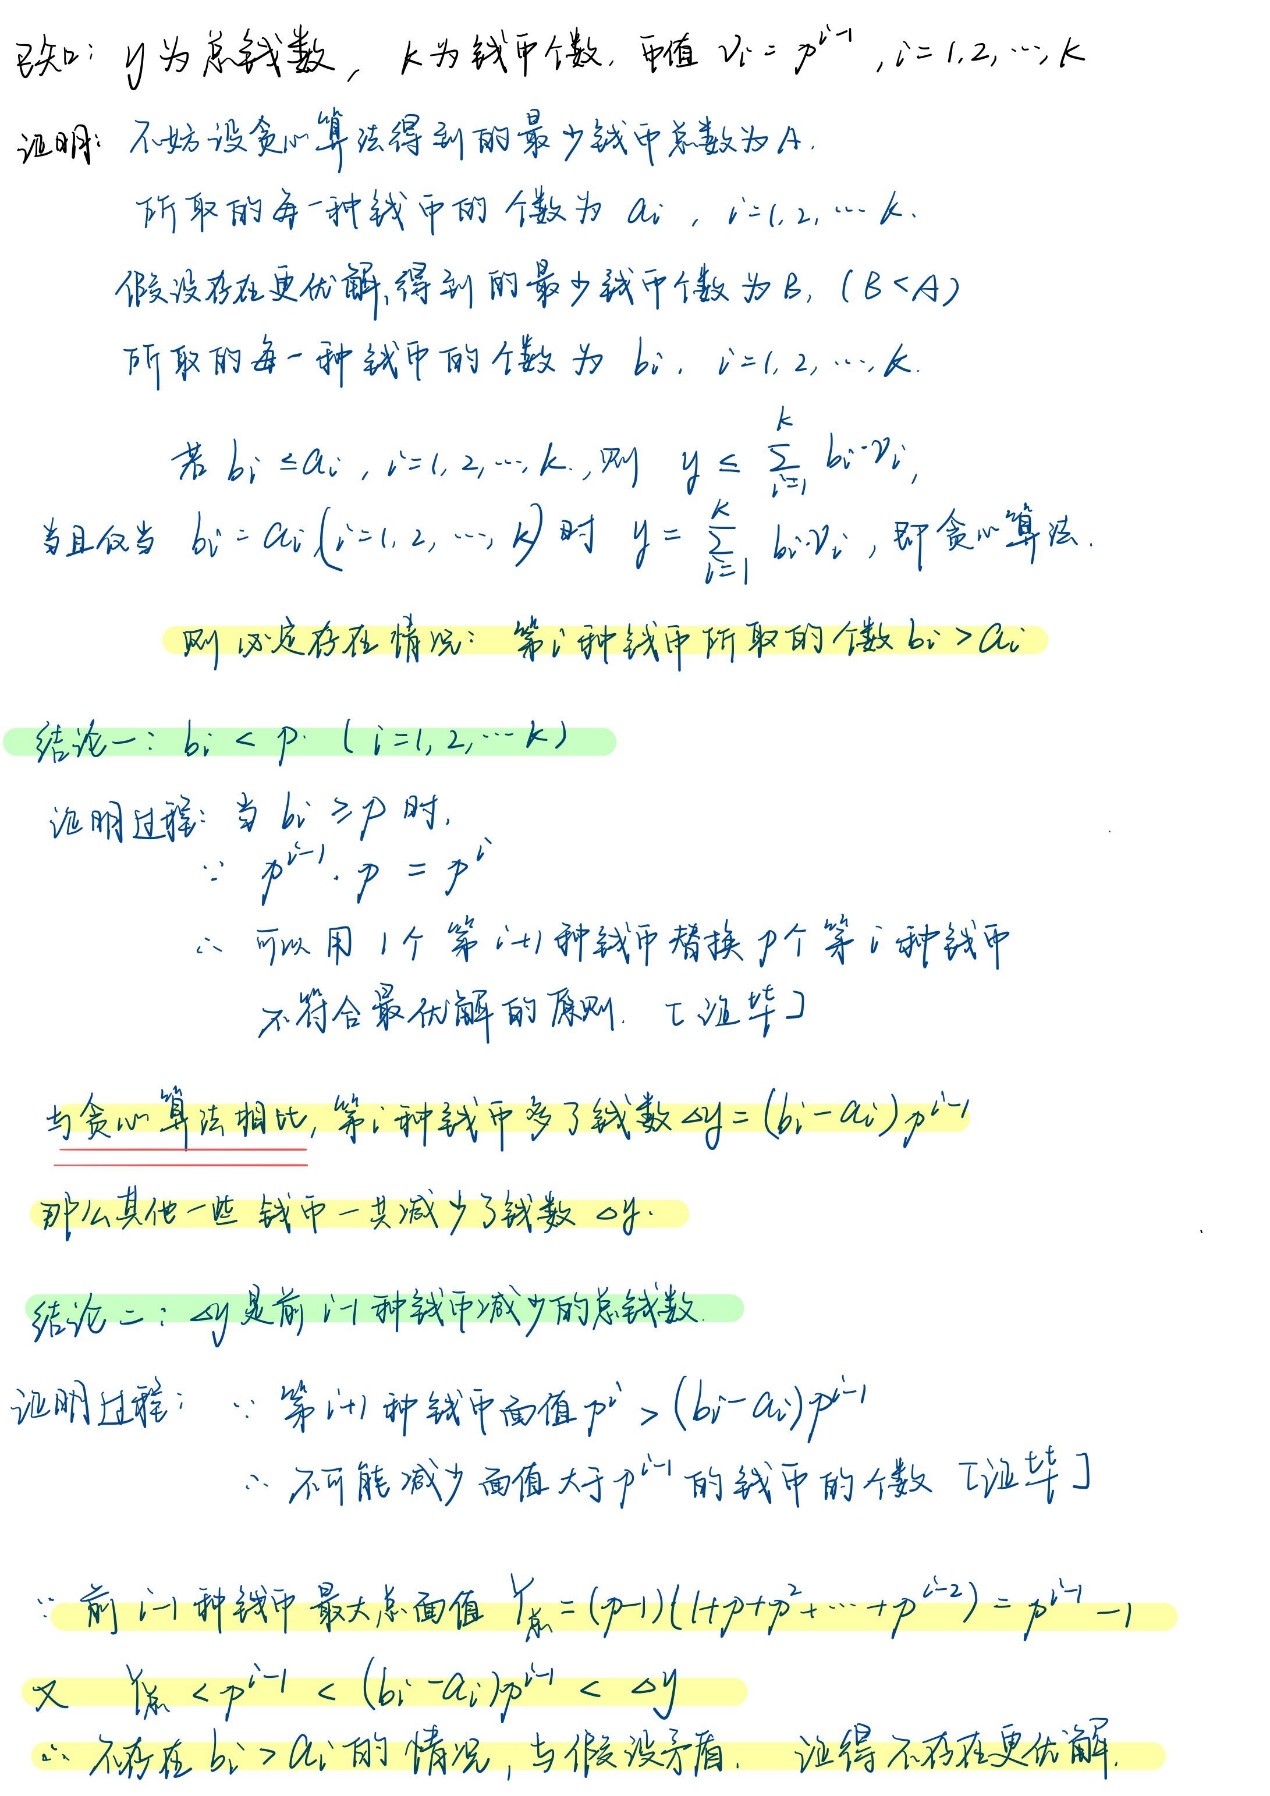 已知：y为总钱数，k为钱币个数，币值 vᵢ = pⁱ⁻¹，i=1,2,…,k
证明：不妨设贪心算法得到的最少钱币总数为A.
所取的每一种钱币的个数为 aᵢ，i=1,2,…k.
假设存在更优解，得到的最少钱币个数为B，(B<A)
所取的每一种钱币的个数为 bᵢ，i=1,2,…,k.
若 bᵢ ≤ aᵢ，i=1,2,…,k.，则 y ≤ ∑ᵢ₌₁ᵏ bᵢ·vᵢ，
当且仅当 bᵢ = aᵢ (i=1,2,…,k) 时 y = ∑ᵢ₌₁ᵏ bᵢ·vᵢ，即贪心算法.
则必定存在情况：第i种钱币所取的个数 bᵢ > aᵢ
结论一：bᵢ < p. (i=1,2,…k)
证明过程：当 bᵢ ≥ p 时，
∵ pⁱ⁻¹·p = pⁱ
∴ 可以用1个第i+1种钱币替换p个第i种钱币
不符合最优解的原则. [证毕]
与贪心算法相比，第i种钱币多了钱数 △y = (bᵢ - aᵢ) pⁱ⁻¹
那么其他一些钱币一共减少了钱数 △y.
结论二：△y是前i-1种钱币减少的总钱数.
证明过程：∵ 第i+1种钱币面值 pⁱ > (bᵢ - aᵢ) pⁱ⁻¹
∴ 不可能减少面值大于 pⁱ⁻¹ 的钱币的个数 [证毕]
∵ 前i-1种钱币最大总面值 Y总 = (p-1)(1+p+p²+…+pⁱ⁻²) = pⁱ⁻¹ - 1
又 Y总 < pⁱ⁻¹ < (bᵢ - aᵢ) pⁱ⁻¹ < △y
∴ 不存在 bᵢ > aᵢ 的情况，与假设矛盾. 证得不存在更优解.